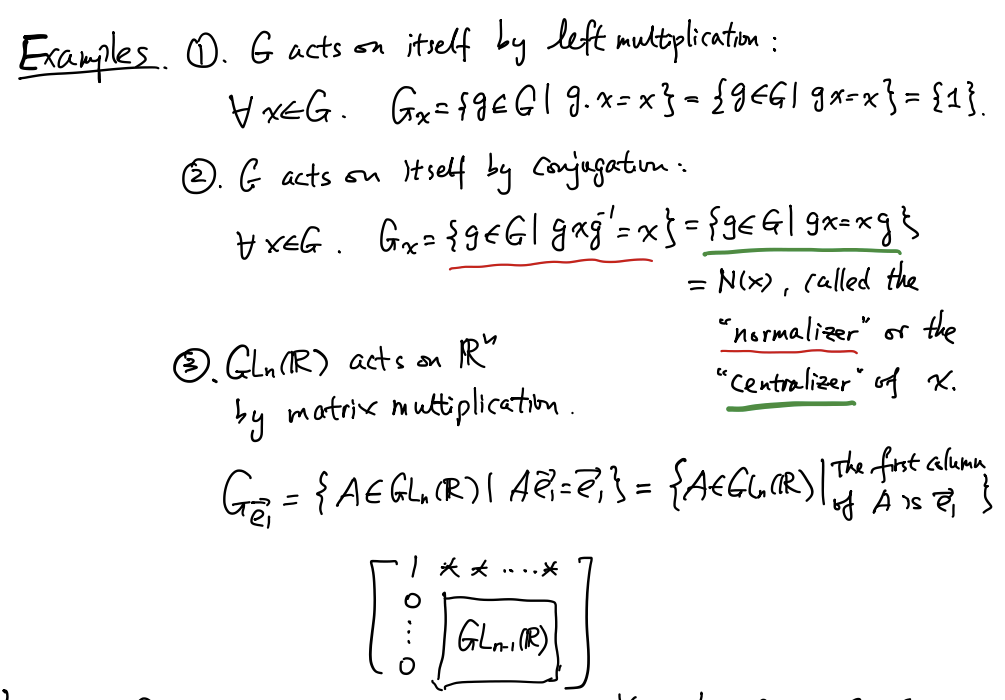 Examples. ①. G acts on itself by left multiplication :
∀ x∈G. Gₓ = {g∈G | g.x=x} = {g∈G | gx=x} = {1}.
②. G acts on itself by conjugation :
∀ x∈G. Gₓ = {g∈G | gxg⁻¹=x} = {g∈G | gx=xg}
= N(x), called the
"normalizer" or the
③. GLₙ(ℝ) acts on ℝⁿ
"centralizer" of x.
by matrix multiplication.
G_{e⃗₁} = {A∈GLₙ(ℝ) | Ae⃗₁=e⃗₁} = {A∈GLₙ(ℝ) | The first column
of A is e⃗₁ }
1 * * ....*
0
⋮ GLₙ₋₁(ℝ)
0